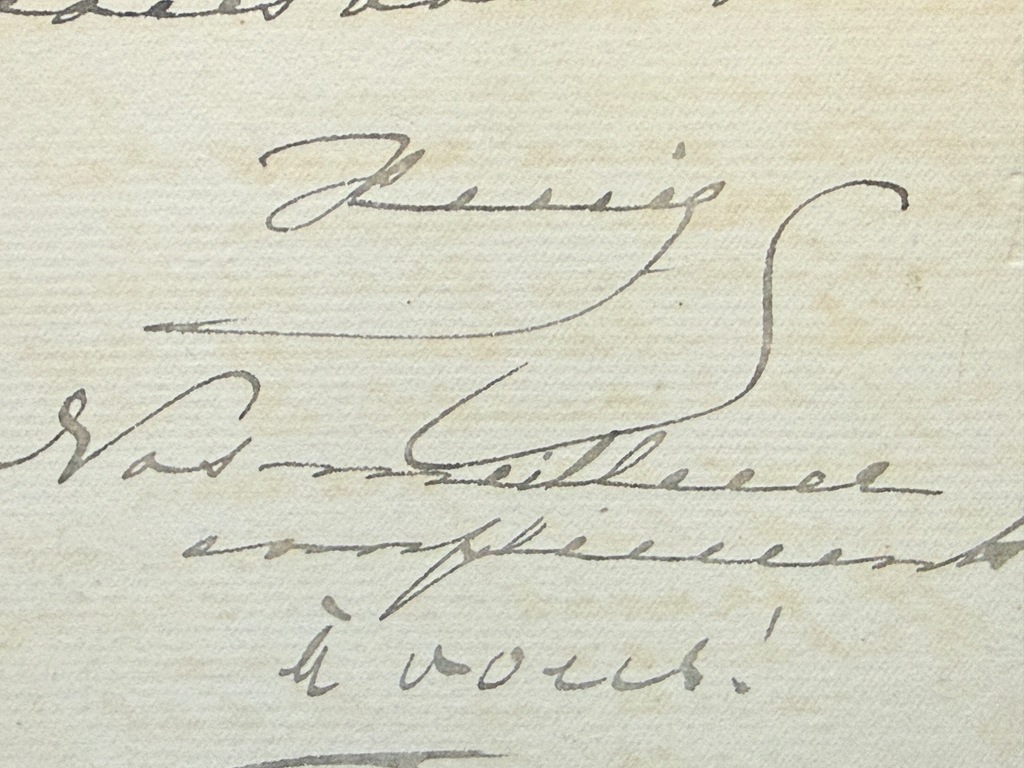 Nos meilleur
compliments
à vous!